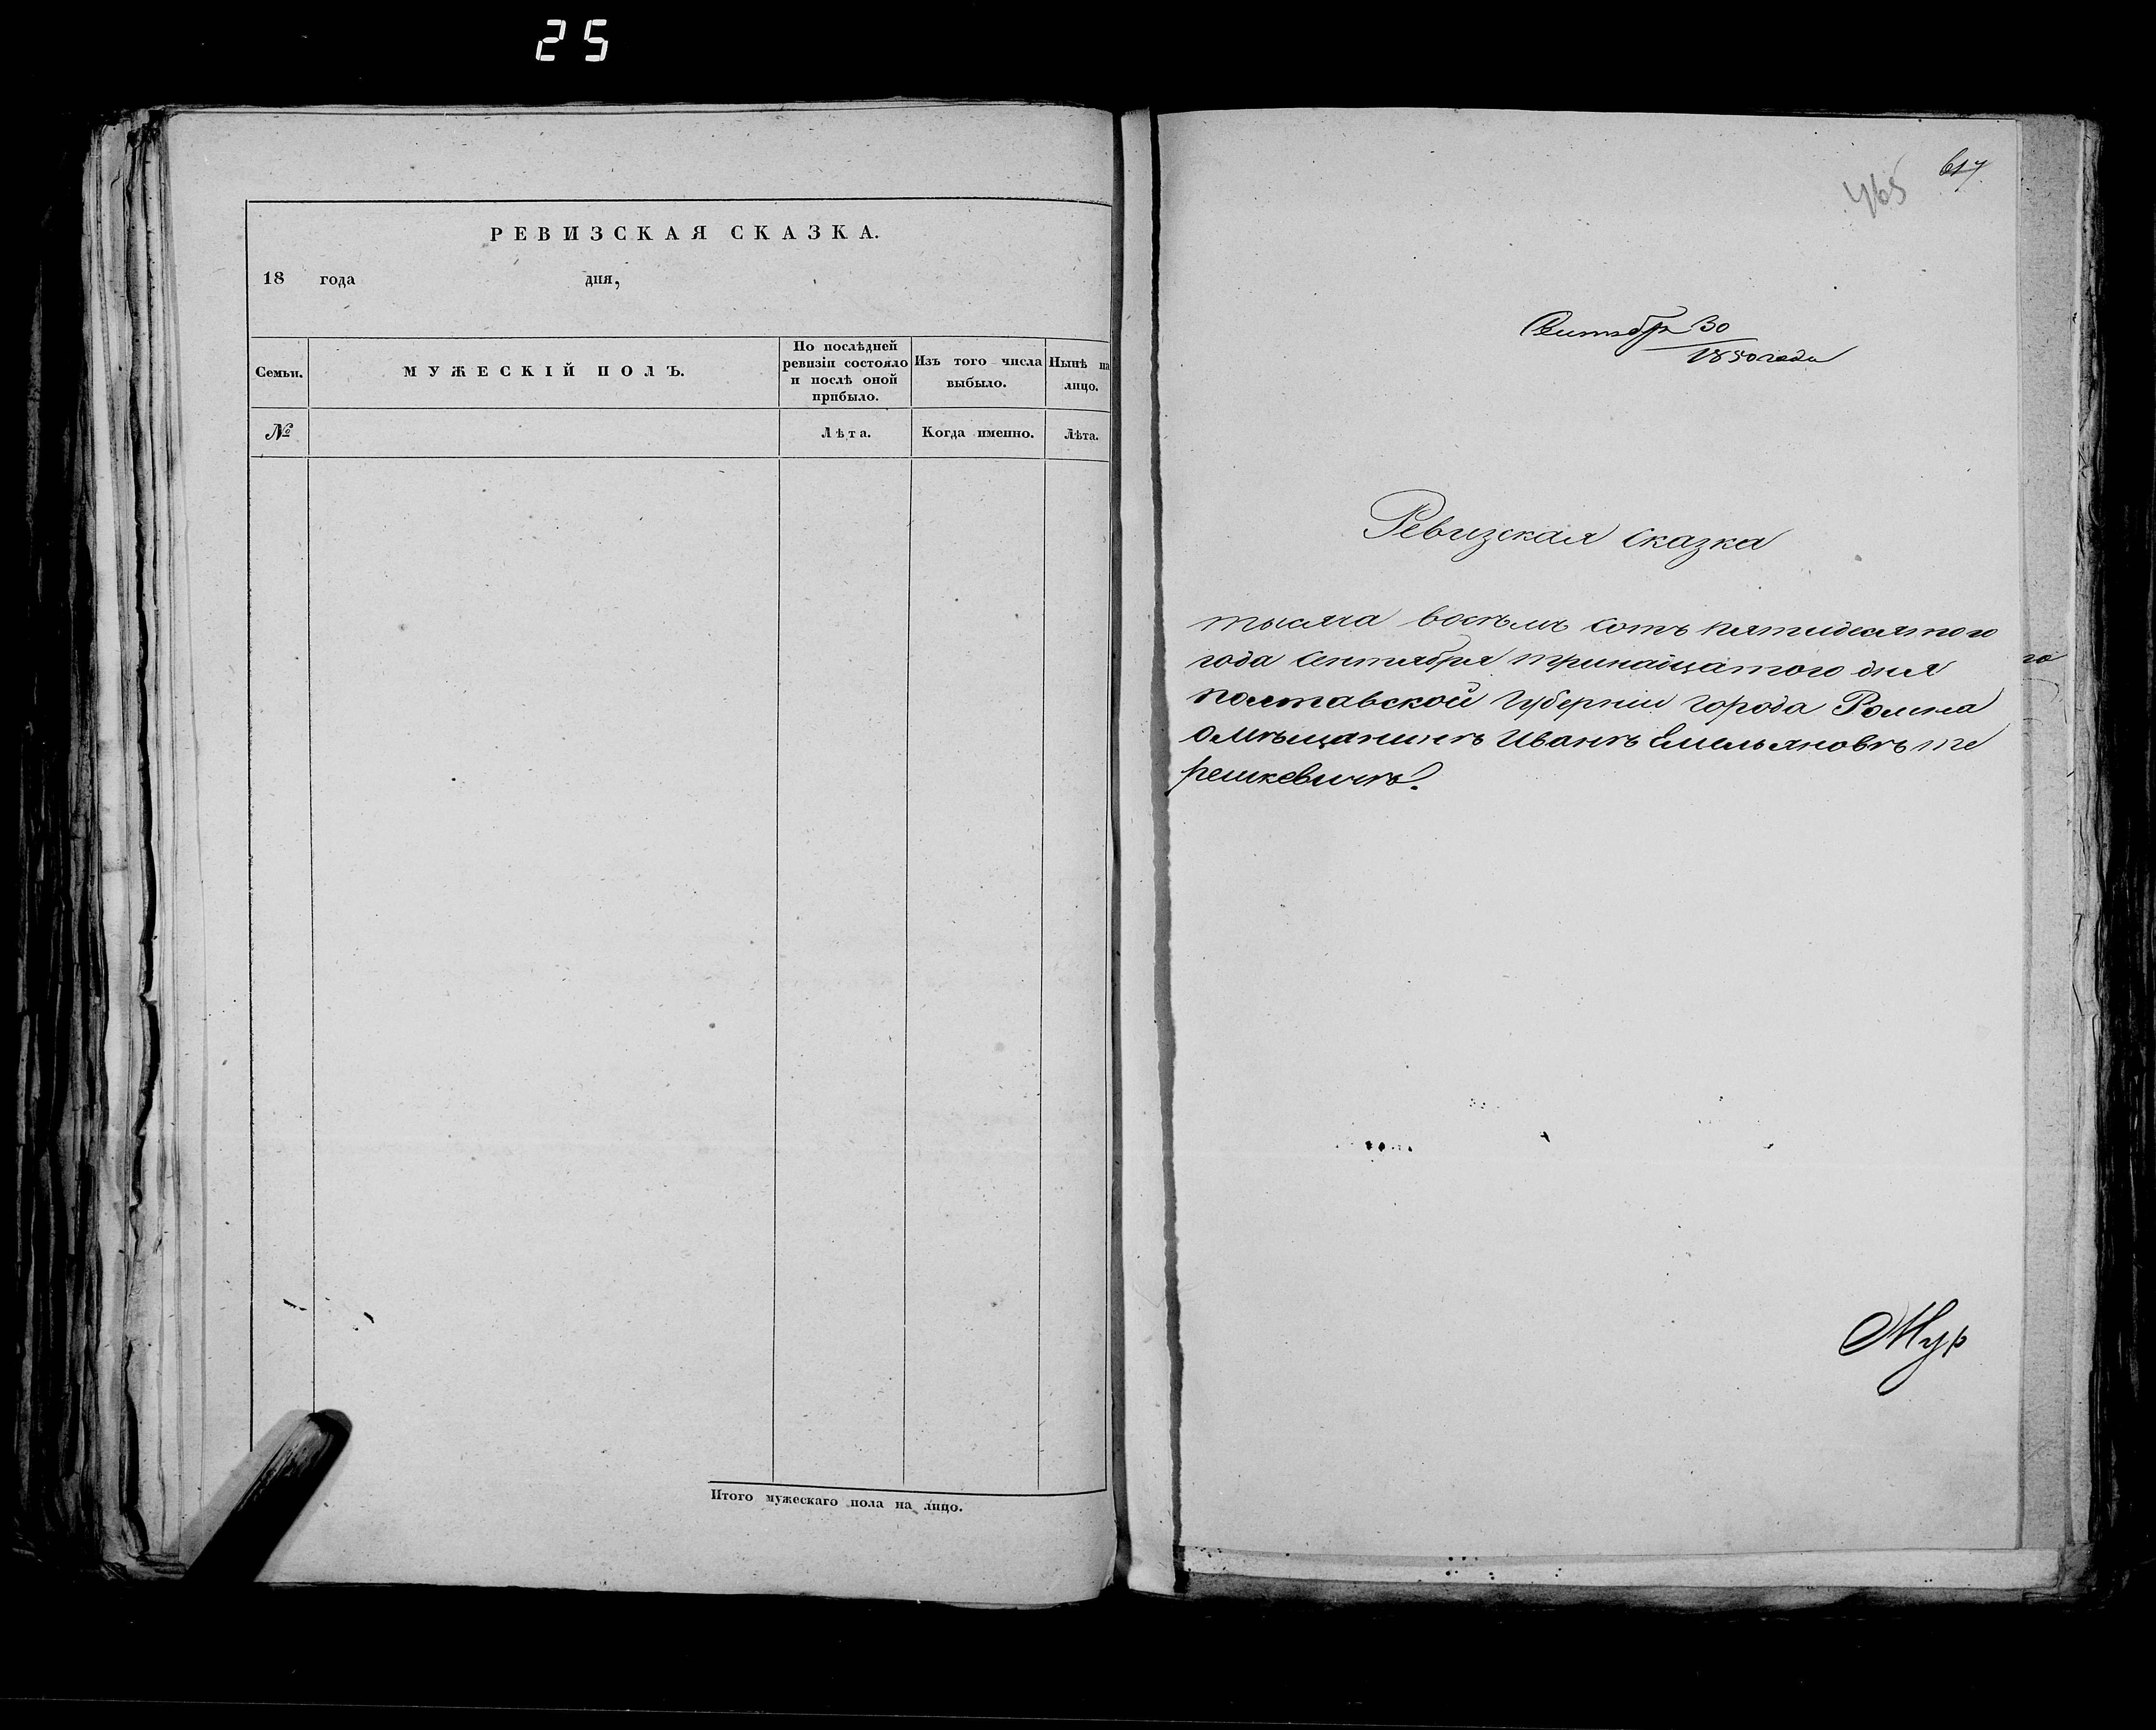 25
РЕВИЗСКАЯ СКАЗКА.
18 года дня,
Семьи.
МУЖЕСКІЙ ПОЛЪ.
По послѣдней
ревизіи состояло
и послѣ оной
прибыло.
Изъ того числа
выбыло.
Нынѣ на
лицо.
№
Лѣта.
Когда именно.
Лѣта.
Итого мужескаго пола на лицо.
617
465
Сентябр 30
1850 года
Ревизская сказка
тысяча восѣмъ сотъ пятидесятого
года сентября тринадцатого дня
полтавской губерніи города Ромна
о мѣщанинѣ Иванѣ Емельяновѣ те
решкевичѣ.
Мур
го